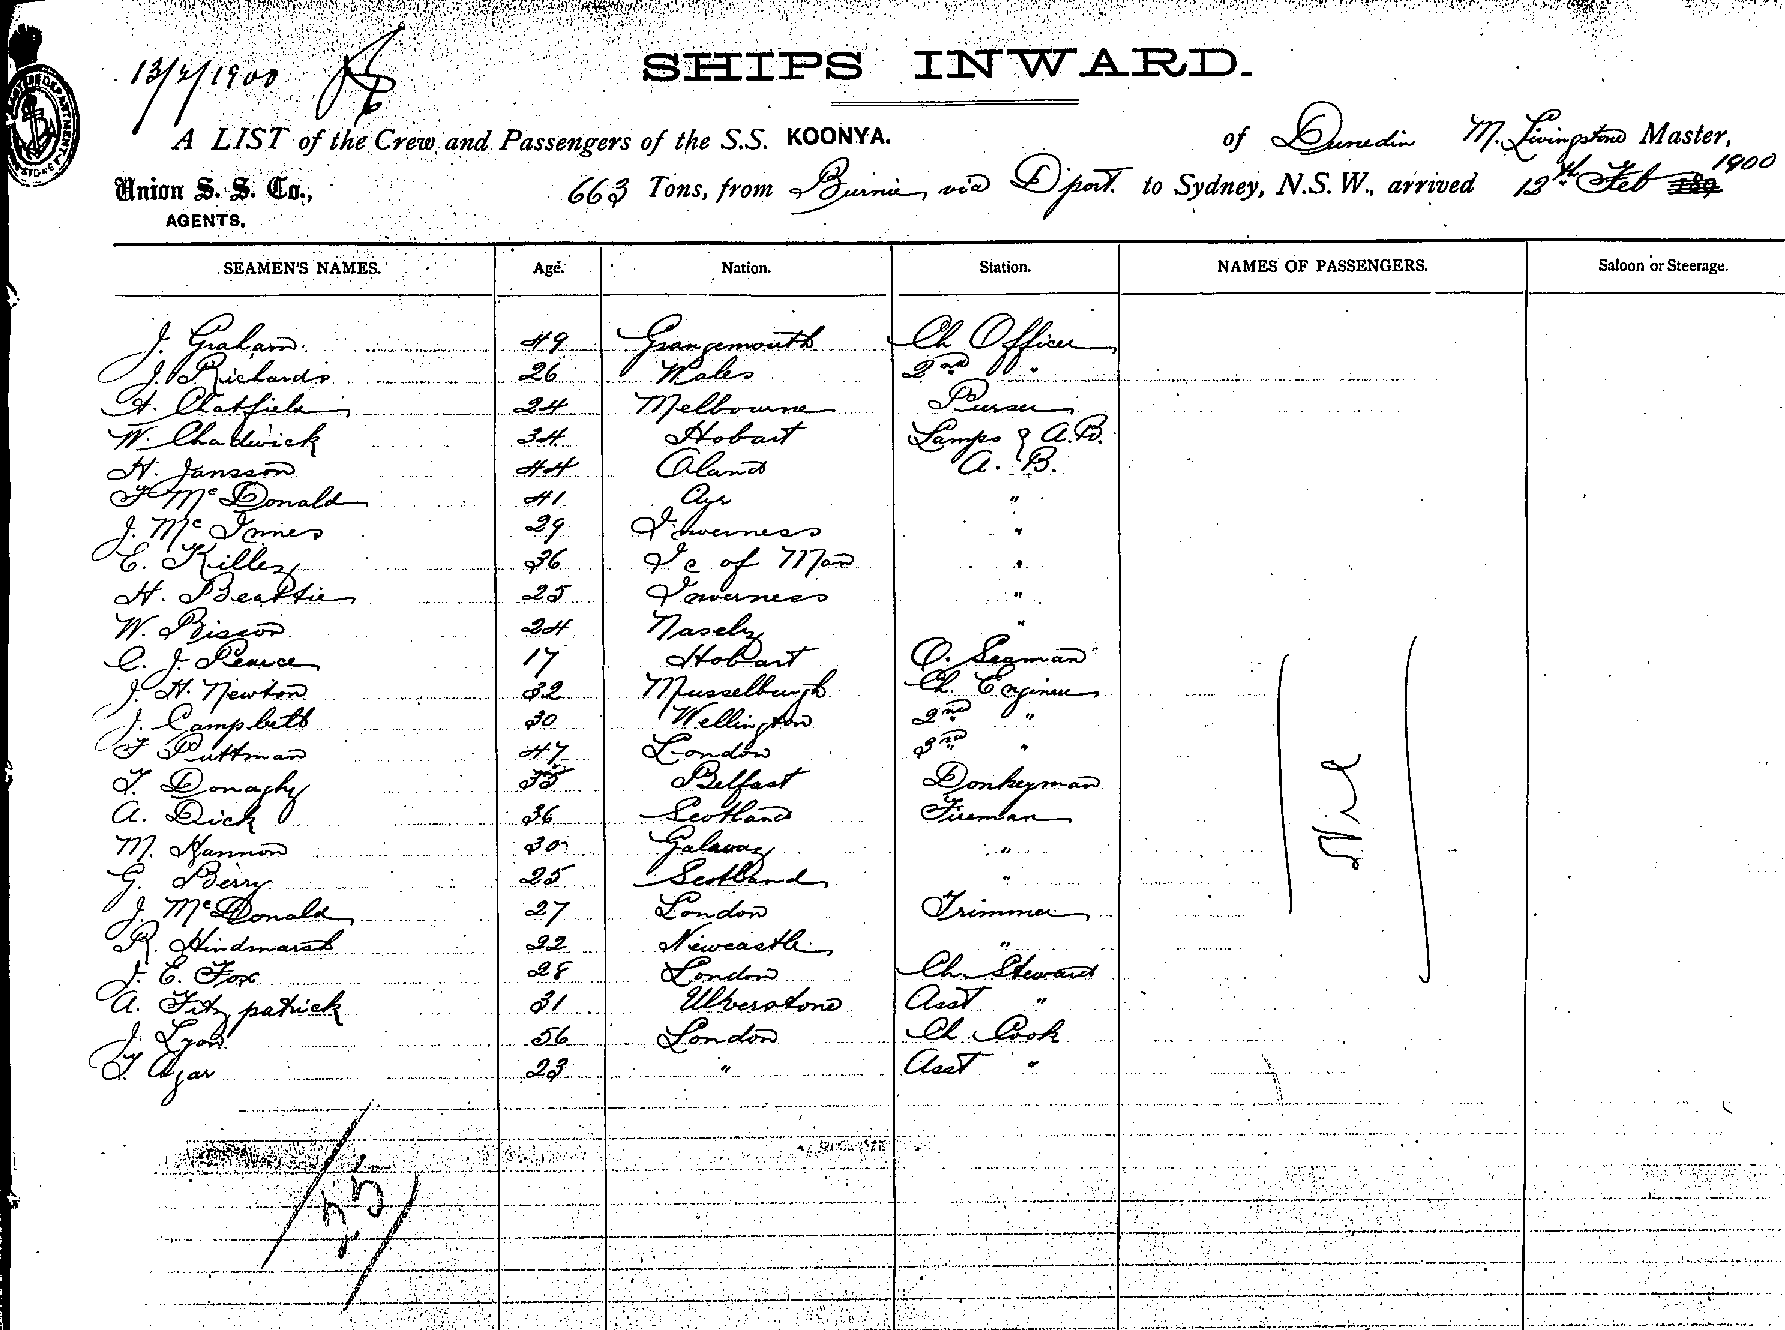 13/2/1900
SHIPS INWARD.
A LIST of the Crew and Passengers of the S.S. KOONYA. of Dunedin M. Livingstone Master,
Union S. S. Co., AGENTS. 663 Tons, from Burnie via D'port. to Sydney, N.S.W., arrived 13th Feb 1900
SEAMEN'S NAMES. Age. Nation. Station. NAMES OF PASSENGERS. Saloon or Steerage.
J. Graham 49 Grangemouth Ch Officer
J. Richards 26 Wales 2nd "
H. Chatfield 24 Melbourne Purser
W. Chadwick 34 Hobart Lamps & A.B.
H. Jansson 44 Oland A. B.
F McDonald 41 Ayr "
J. McInnes 29 Inverness "
E. Killey 36 I e of Man "
H. Beattie 25 Inverness "
W. 24 Naseby "
C. J. Pearce 17 Hobart O. Seaman
J. H. Newton 32 Musselburgh Ch. Engineer
J. Campbell 30 Wellington 2nd "
F Puttman 47 London 3rd "
T. Donaghy 35 Belfast Donkeyman
A. Dick 36 Scotland Fireman
M. Hannon 30 Galway "
G. Berry 25 Scotland "
J. McDonald 27 London Trimmer
R. Hindmarsh 22 Newcastle "
J. E. Fox 28 London Ch. Steward
A. Fitzpatrick 31 Ulverstone Asst "
J. Lyon 56 London Ch Cook
T. Agar 23 " Asst "
Nil
25